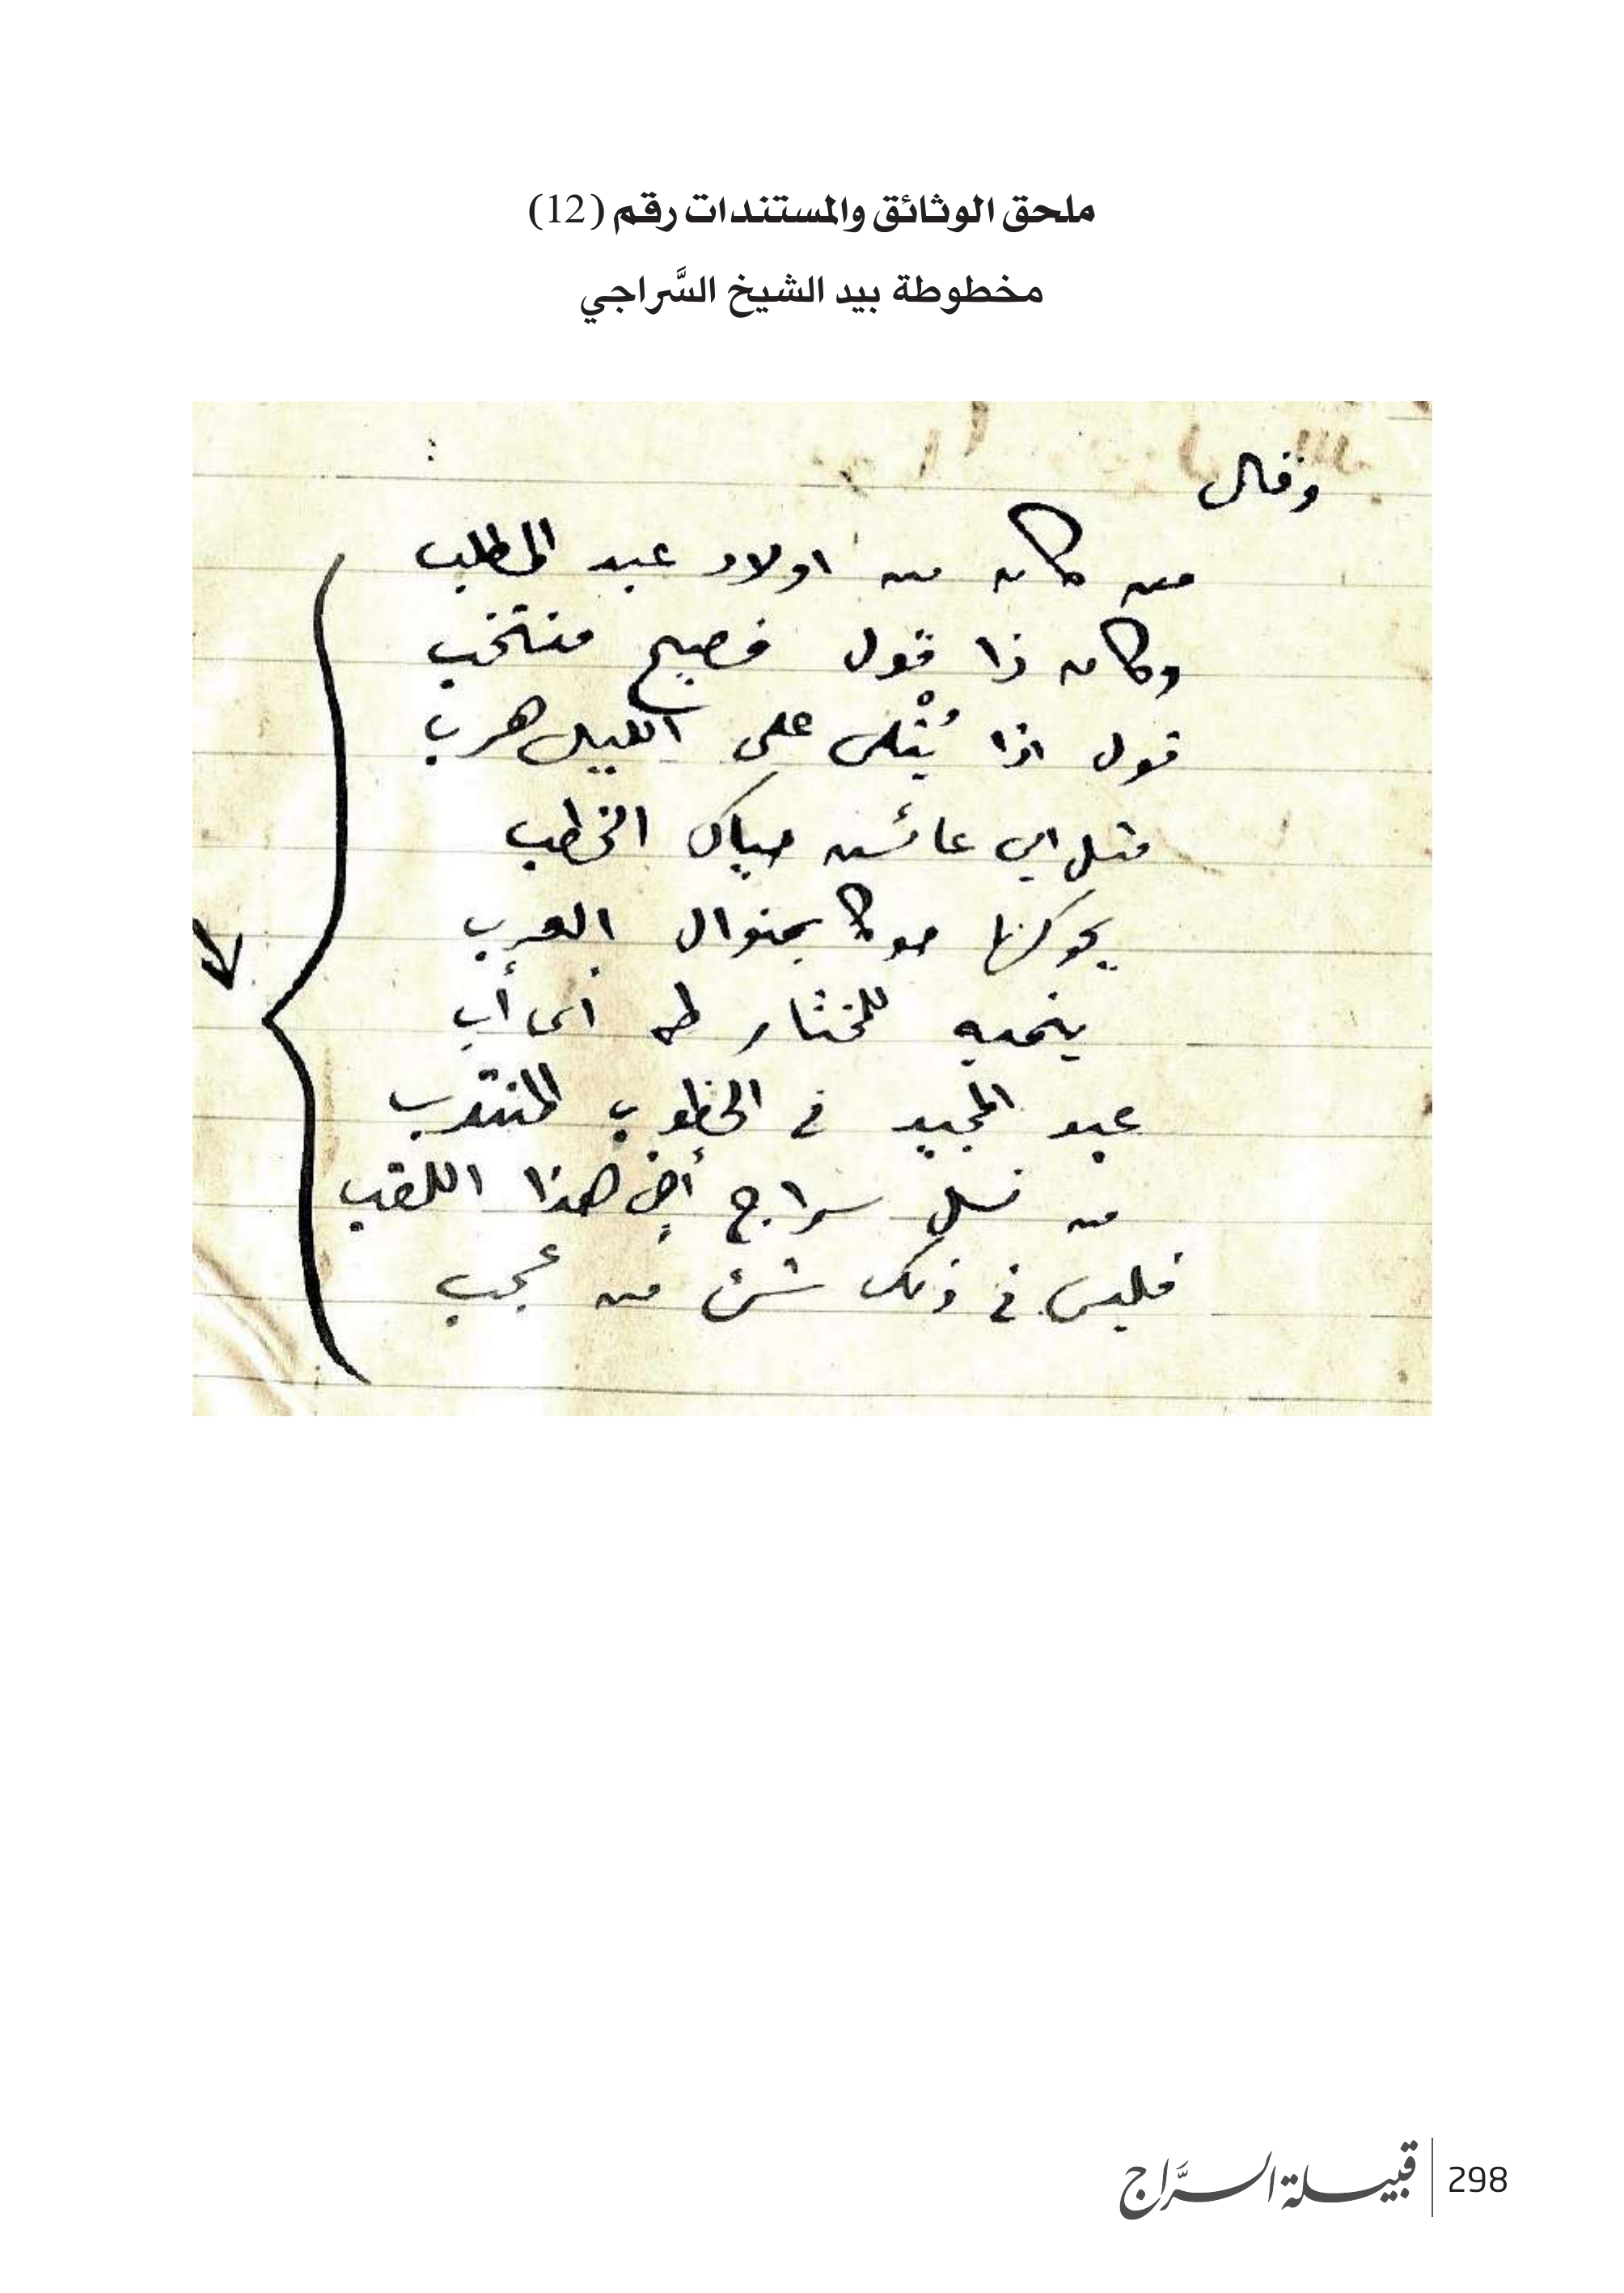 ملحق الوثائق والمستندات رقم (12)
مخطوطة بيد الشيخ السَّراجي
وقال
من كان من اولاد عبد المطلب
وكان ذا قول فصيح منتخب
قول اذا يُتْلى على الليل هرب
مثل ابي عائش حياك الخطب
يحوكها حوكا بمنوال العرب
ينميه للمختار طه أي أب
عبد المجيد في الخطوب المنتدب
من نسل سراج أخي هذا اللقب
فليس في ذلك شئ من عجب
298
قبيلة السَّراج